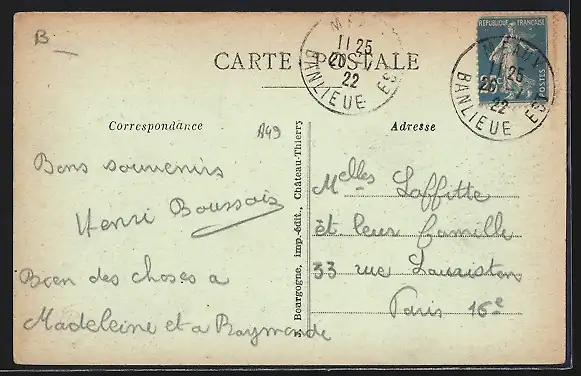 B
CARTE POSTALE
RÉPUBLIQUE FRANÇAISE
POSTES
11 25
20
22
BANLIEUE
11 25
22
BANLIEUE
Correspondance
A49
Adresse
Bons souvenirs
Henri Boussois
Bien des choses a
Madeleine et a Raymonde
Bourgogne, imp.-édit., Château-Thierry
Melles Laffitte
et leur famille
33 rue Lauriston
Paris 16e